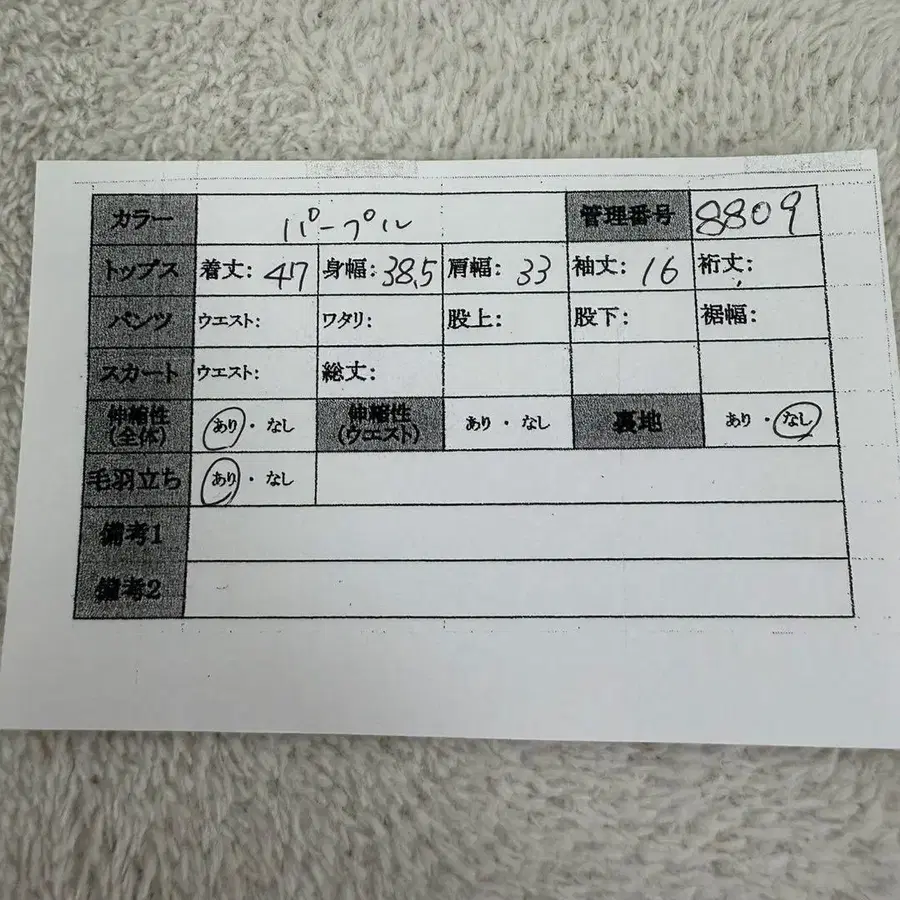 カラー パープル 管理番号 8809
トップス 着丈: 47 身幅: 38.5 肩幅: 33 袖丈: 16 裄丈:
パンツ ウエスト: ワタリ: 股上: 股下: 裾幅:
スカート ウエスト: 総丈:
伸縮性 (全体) あり・なし 伸縮性 (ウエスト) あり・なし 裏地 あり・なし
毛羽立ち あり・なし
備考1
備考2